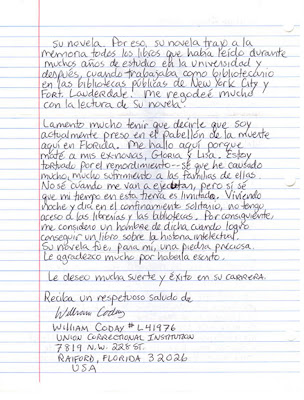 su novela. Por eso, su novela trajo a la
memoria todos los libros que había leído durante
muchos años de estudio en la universidad y
después, cuando trabajaba como bibliotecario
en las bibliotecas públicas de New York City y
Fort Lauderdale. Me regodeé mucho
con la lectura de su novela.
Lamento mucho tener que decirle que soy
actualmente preso en el pabellón de la muerte
aquí en Florida. Me hallo aquí porque
maté a mis exnovias, Gloria y Lisa. Estoy
torturado por el remordimiento--sé que he causado
mucho, mucho sufrimiento a las familias de ellas.
No sé cuando me van a ejecutan, pero sí sé
que mi tiempo en esta tierra es limitada. Viviendo
noche y día en el confinamiento solitario, no tengo
aceso a las librerías y las bibliotecas. Por consiguiente,
me considero un hombre de dicha cuando logro
conseguir un libro sobre la historia intelectual.
Su novela fue, para mí, una piedra preciosa.
Le agradezco mucho por haberla escrito.
Le deseo mucha suerte y éxito en su carrera.
Reciba un respetuoso saludo de
William Coday
William Coday # L41976
Union Correctional Institution
7819 N.W. 228 St.
Raiford, Florida 32026
USA